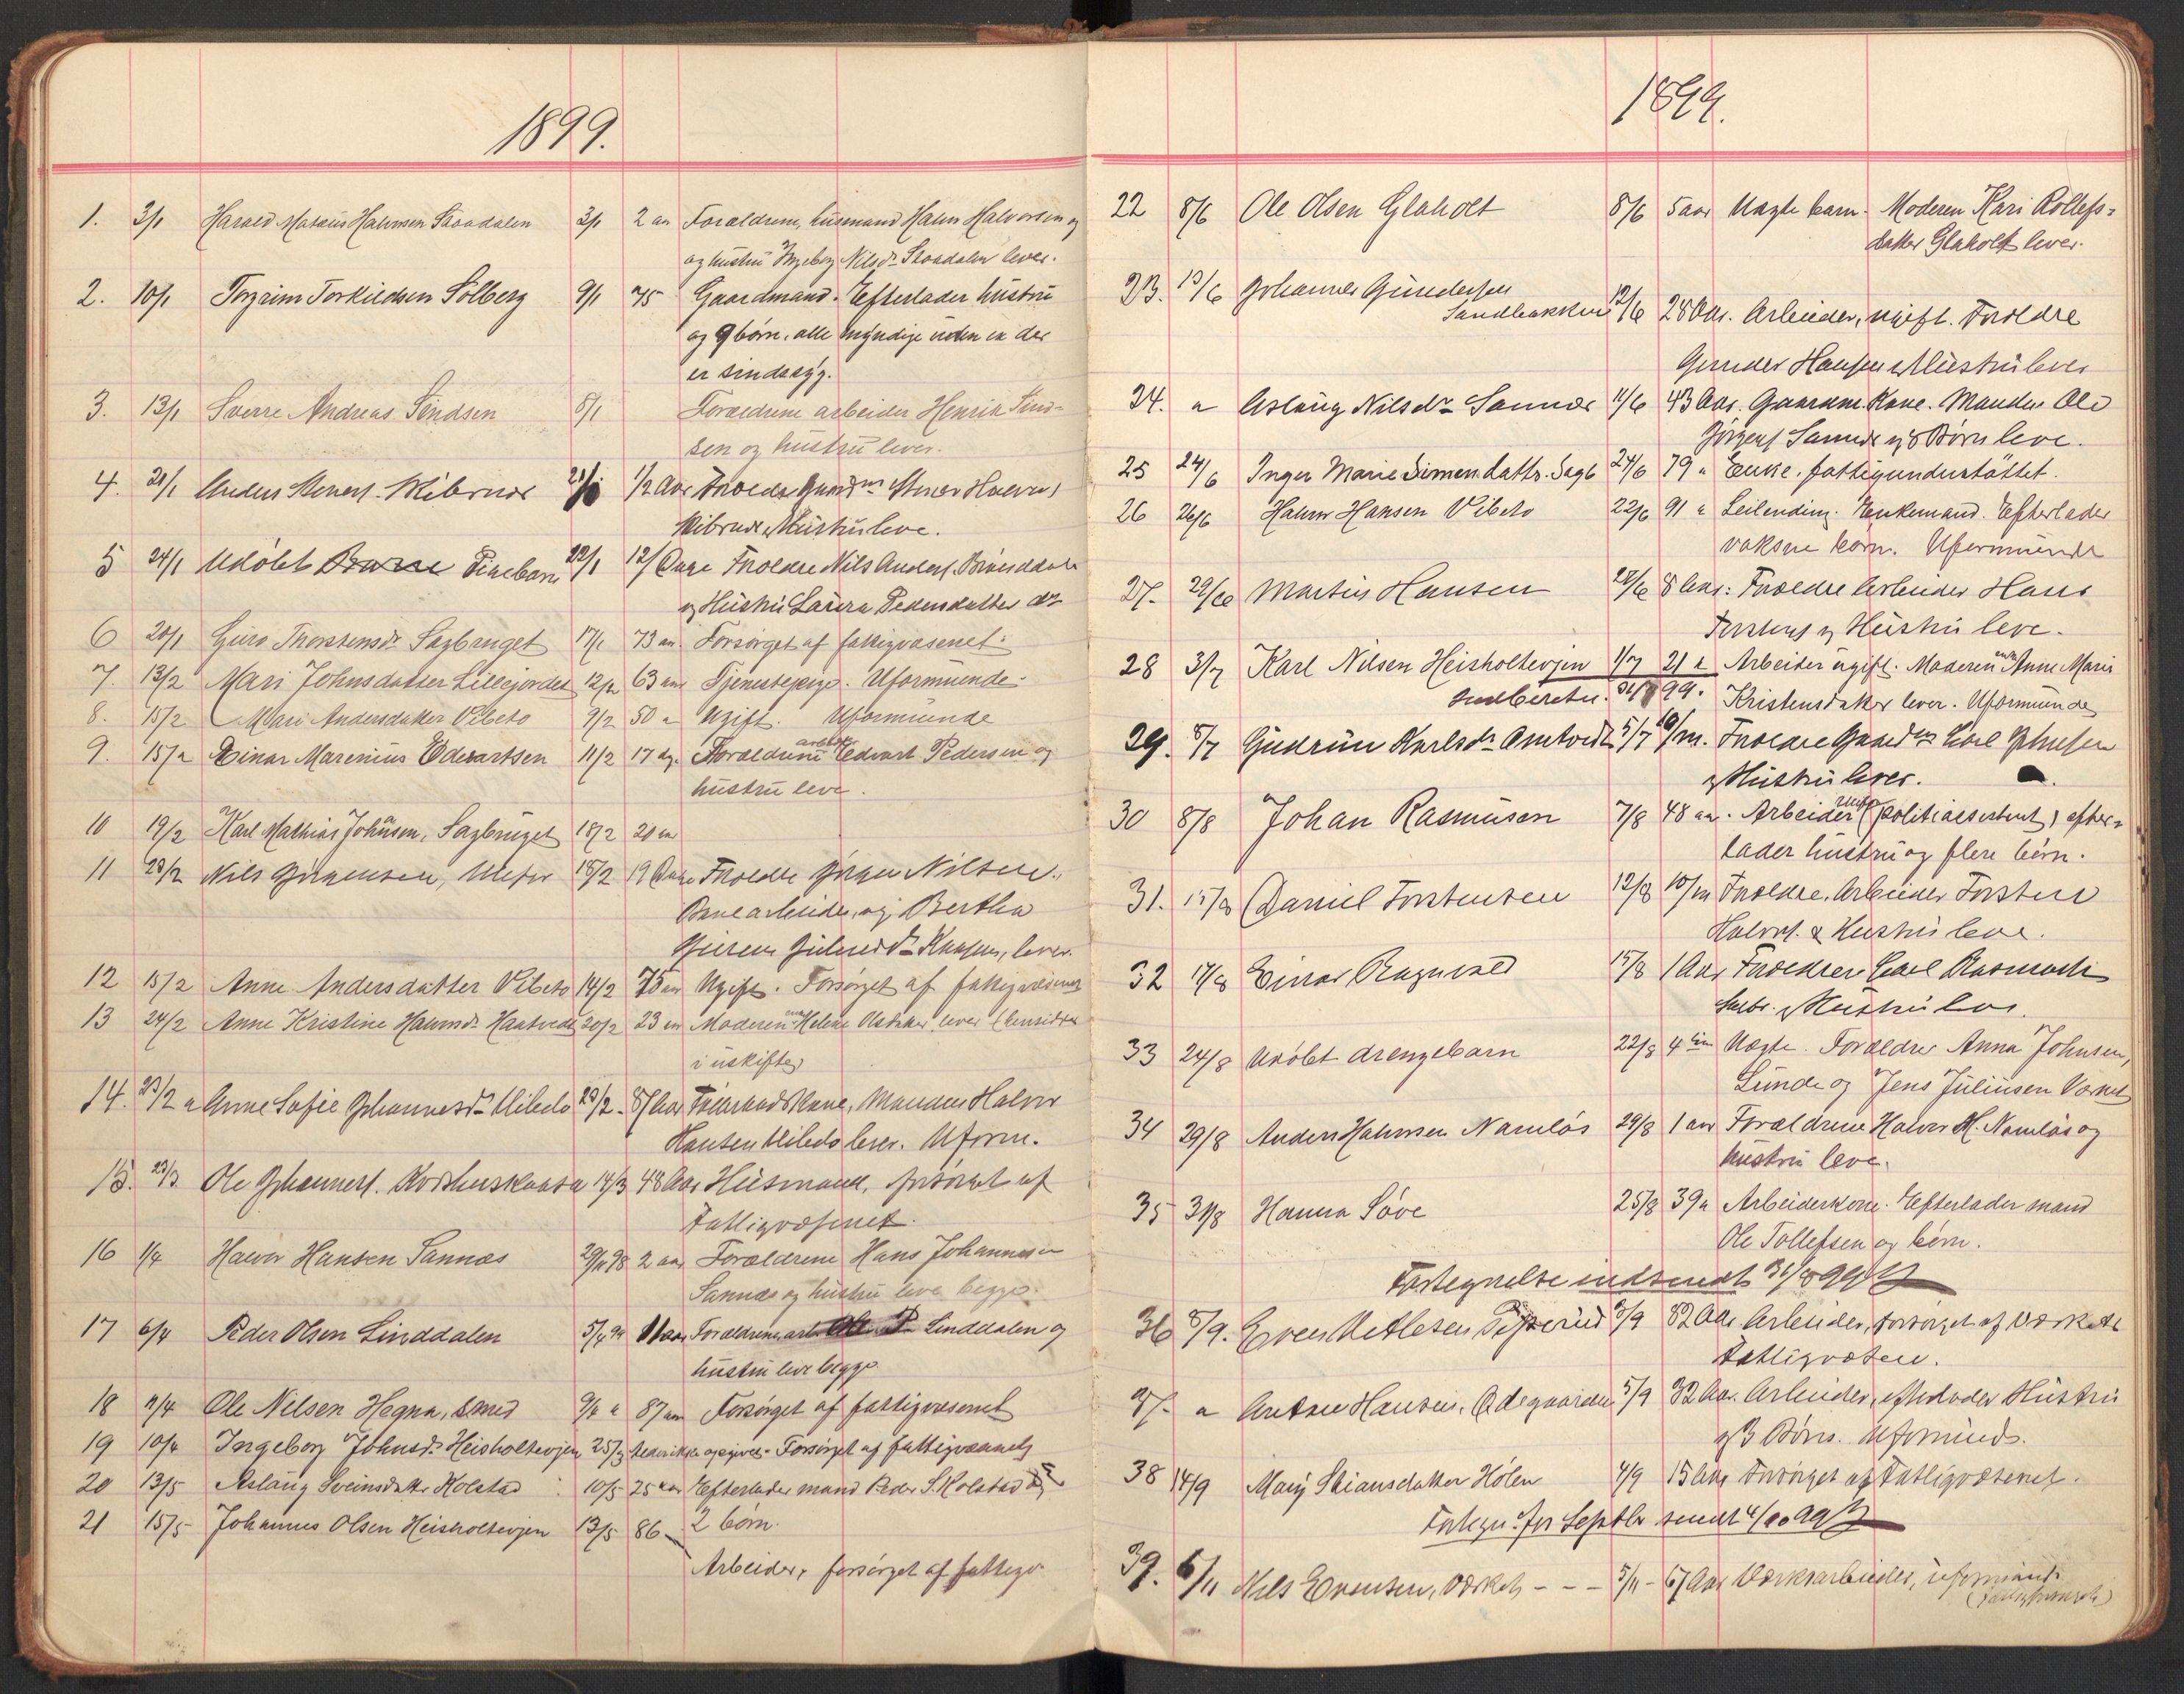 1899.
1. 3/1 Harald Matæus Halvorsen Skaadalen 3/1 2 aar Forældrene, husmand Halvor Halvorsen og
og hustru Ingeborg Nilsdr. Skaadalen lever.
2. 10/1 Torgrim Torkildsen Solberg 9/1 75 Gaardmand. Efterlader hustru
og 9 börn, alle myndige uden en der
er sindssyg.
3. 13/1 Sverre Andreas Sindsen 8/1 Forældrene arbeider Henrik Sind-
sen og hustru lever.
4. 21/1 Anders 1/2 Aar
Hustru leve.
5 24/1 Udöbt Barn Pigebarn 22/1 12 Dage Forældre Nils Anders.
og Hustru Laura Pedersdatter do
6 20/1 Guro Thorstensdr. Sagbruget 17/1 73 aar. Forsörget af fattigvæsenet.
7. 13/2 Mari Johnsdatter Lillejordet 12/2 63 aar Tjenestepige. Uformuende.
8. 15/2 Mari Andersdatter Vibeto 9/2 50 " Ugift. Uformuende
9. 15/2 Einar Marenius Edvartsen 11/2 17 dg. Forældrene arbeider Edvart Pedersen og
hustru leve.
10 19/2 Karl Mathias Johnsen, Sagbruget 18/2 20 aar
11 23/2 Nils Jörgensen, Ulefos 18/2 19 Dage Forældre Jörgen Nilsen,
Banearbeider, og Bertha
lever.
12 15/2 Anne Andersdatter Vibeto 14/2 75 aar Ugift. Forsörget af fattigvæsenet
13 24/2 Anne Kristine Halvorsdr. Hantvedt 20/2 23 aar Moderen enke Helene Olsdatter lever (hensidder
i uskifte)
14. 23/2 Anne Sofie Johannesdr. Vibeto 20/2 87 Aar Föderaadskone, Manden Halvor
Hansen Vibeto lever. Uform.
15. 23/3 Ole Johanness. 14/3 48 Aar Husmand, forsörget af
Fattigvæsenet.
16 1/4 Halvor Hansen Sannæs 29/11 98 2 aar Forældrene Hans Johannesen
Sannæs og hustru leve begge.
17 6/4 Peder Olsen Linddalen 5/4 99 11 aar Forældrene arb. Ole P. Linddalen og
hustru leve begge.
18 11/4 Ole Nilsen Hegna, smed 9/4 87 aar Forsörget af fattigvæsenet
19 10/4 Ingeborg Johnsdr. Heisholtevjen 25/3 Forsörget af fattigvæsenet
20 13/5 Aslaug Sveinsdatter Kolstad 10/5 25 aar Efterlader mand Peder S. Kolstad og
2 börn.
21 15/5 Johannes Olsen Heisholtevjen 13/5 86
Arbeider, forsörget af fattigv.
1899.
22 8/6 Ole Olsen Glaholt 8/6 5 aar Uægte barn. Moderen Kari Rollefs-
datter Glaholt lever.
23. 13/6 Johannes Gundersen
Sandbakken 12/6 28 Aar. Arbeider, ugift. Forældre
Gunder Hansen & Hustru lever
24. " Aslaug Nilsdr. Sannæs 11/6 43 Aar. Gaardm. Kone. Manden Ole
Jörgens. Sannæs og 8 Börn leve.
25 24/6 Inger Marie Simensdatter Sagb 24/6 79 " Enke. fattigunderstöttet.
26 26/6 Halvor Hansen Vibeto 22/6 91 " Leilending. Enkemand. Efterlader
voksne börn. Uformuende
27. 29/6 Martin Hansen 28/6 8 Aar. Forældre Arbeider Hans
Torstens. og Hustru leve.
28 3/7 Karl Nilsen Heisholtevjen 1/7 21 " Arbeider ugift. Moderen enke Anne Marie
Indberettet 99. Kristensdatter lever. Uformuende
29. 5/7 Gudrun Karlsdr. Omtvedt 5/7 Forældre Gaardm. Carl Johnsen
og Hustru lever.
30 8/8 Johan Rasmusen 7/8 48 aar. Arbeider (politiassistent) efter-
lader hustru og flere börn.
31. 15/8 Daniel Torstensen 12/8 10/m Forældre, Arbeider Torsten
Halvors. & Hustru leve.
32 17/8 Einar Ragnvald 15/8 1 Aar Forældre Carl Rasmus
& Hustru
33 24/8 Udöbt drengebarn 22/8 4 tim Uægte. Forældre Anna Johnsen,
Lunde og Jens Juliusen
34 29/8 Anders Halvorsen Namlös 29/8 1 aar Forældrene Halvor H. Namlös og
hustru leve.
35 31/8 Hanna Söve 25/8 39 " Arbeiderkone. Efterlader mand
Ole Tollefsen og börn.
Fortegnelse indsendt 31/8 99
36 5/9. Even Detlefsen 3/9 82 Aar. Arbeider, forsörget af Værkets
Fattigvæsen.
37. " Anton Hansen, Ödegaarden 5/9 32 Aar. Arbeider, efterlader Hustru
og 3 Börn. Uformuend.
38 14/9 Mari Skiansdatter Hölen 4/9 15 Aar Forsörget af Fattigvæsenet.
Fortegn. for Septbr sendt 4/10 99
39. 6/11 Nils Evensen, Værket - - - 5/11 - 67 Aar Værksarbeider, uformuend.